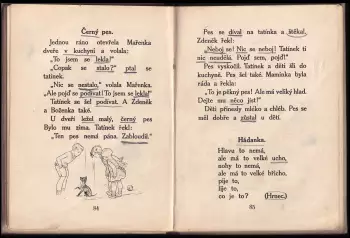 Černý pes.
Jednou ráno otevřela Mařenka
dveře v kuchyni a volala:
„To jsem se lekla!“
„Copak se stalo?“ ptal se
tatínek.
„Nic se nestalo,“ volala Mařenka.
„Ale pojď se podívat! To jsem se lekla!“
Tatínek se šel podívat. A Zdeněk
a Boženka také.
U dveří ležel malý, černý pes
Bylo mu zima. Tatínek řekl:
„Ten pes nemá pána. Zabloudil.“
84
Pes se díval na tatínka a štěkal.
Zdeněk řekl:
„Neboj se! Nic se neboj! Tatínek ti
nic neudělá. Pojď sem, pojď!“
Pes vyskočil. Tatínek a děti šli do
kuchyně. Pes šel také. Maminka byla
ráda a řekla:
„To je pěkný pes! Ale má veliký hlad.
Dejte mu něco jíst!“
Děti přinesly mléko a chléb. Pes se
měl dobře a zůstal u dětí.
Hádanka.
Hlavu to nemá,
ale má to velké ucho,
nohy to nemá,
ale má to velké břicho.
pije to,
lije to,
co je to? (Hrnec.)
85